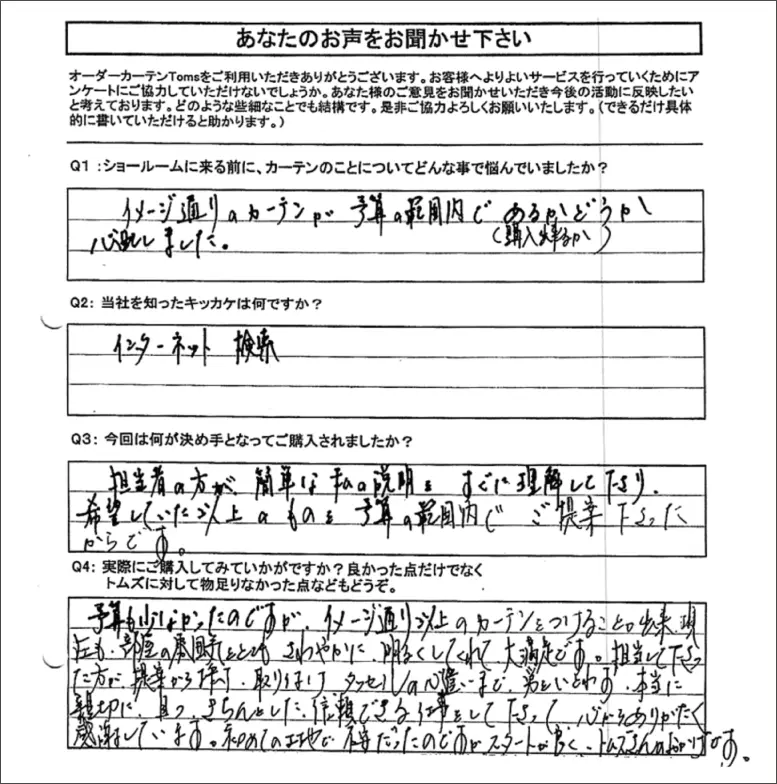 あなたのお声をお聞かせ下さい
オーダーカーテンTomsをご利用いただきありがとうございます。お客様へよりよいサービスを行っていくためにア
ンケートにご協力していただけないでしょうか。あなた様のご意見をお聞かせいただき今後の活動に反映したい
と考えております。どのような些細なことでも結構です。是非ご協力よろしくお願いいたします。（できるだけ具体
的に書いていただけると助かります。）
Q1 :ショールームに来る前に、カーテンのことについてどんな事で悩んでいましたか？
イメージ通りのカーテンが 予算の範囲内で あるかどうか
（購入出来るか）
心配しました。
Q2: 当社を知ったキッカケは何ですか？
インターネット 検索
Q3: 今回は何が決め手となってご購入されましたか？
担当者の方が、簡単な私の説明を すぐに理解して下さり、
希望していた以上のものを予算の範囲内で ご提案下さった
からです。
Q4: 実際にご購入してみていかがですか？良かった点だけでなく
トムズに対して物足りなかった点などもどうぞ。
予算も少なかったのですが、イメージ通り以上のカーテンをつけることが出来、現
在も、部屋の雰囲気をとても さわやかに、明るくしてくれて 大満足です。担当して下さっ
た方が、提案から採寸、取り付け タッセルの 違いまで、男といとわず、本当に
親切に、且つ きちんとした、信頼できる仕事をして下さって、心からありがたく
感謝しています。初めての土地で 不安だったのですが スタートが良く、トムズさんのおかげです。